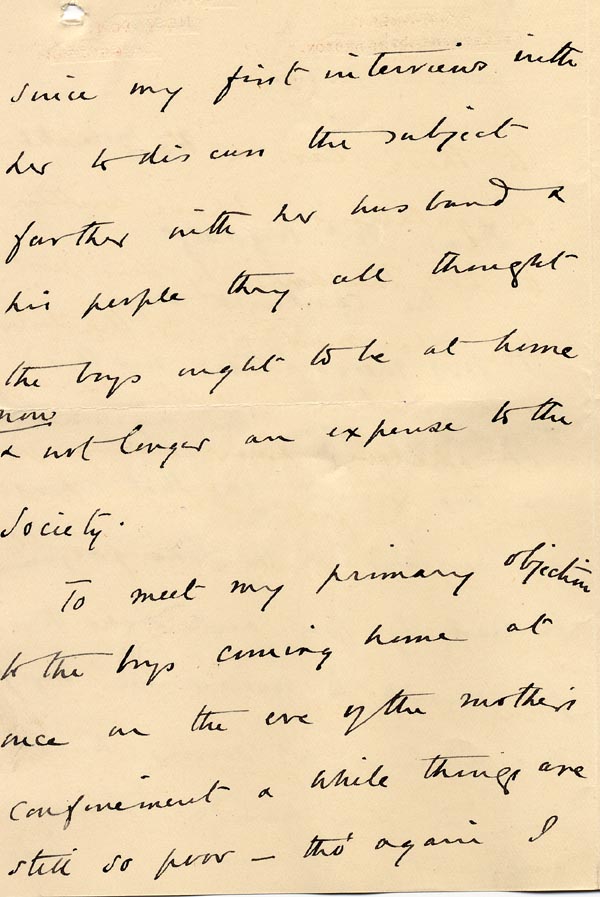 since my first interviews with
her to discuss the subject
farther with her husband &
his people they all thought
the boys ought to be at home
now
& not longer an expense to the
Society.
To meet my primary objection
to the boys coming home at
once on the eve of the mother's
confinement & while things are
still so poor – tho' again I